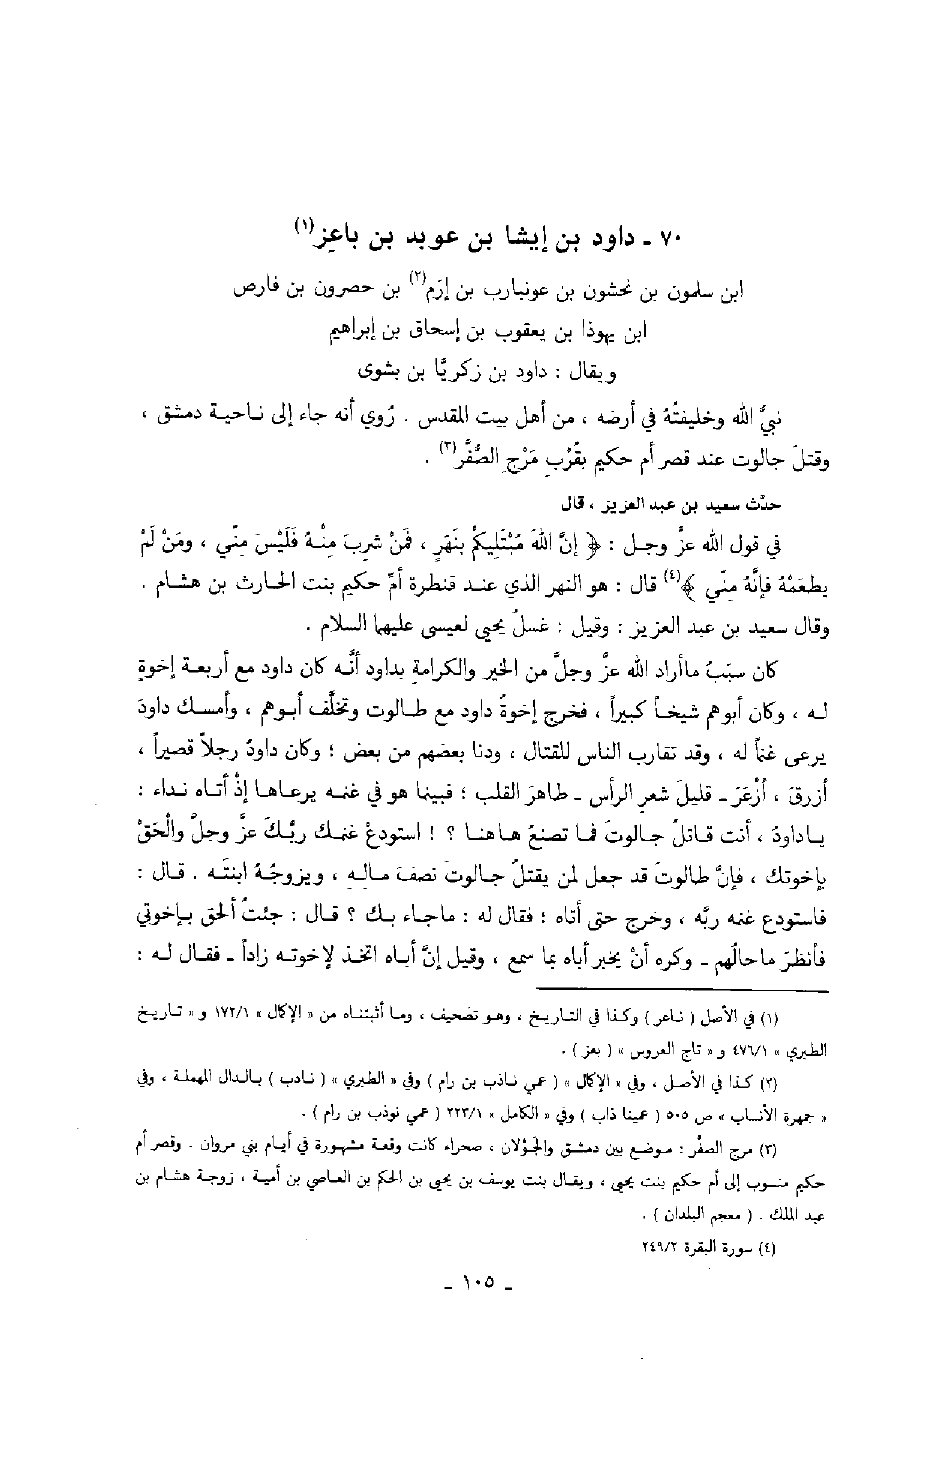 ٧٠ ـ داود بن إيشا بن عوبد بن باعز(١)
ابن سلمون بن نحشون بن عونيارب بن إرَم(٢) بن حصرون بن فارص
ابن يهوذا بن يعقوب بن إسحاق بن إبراهيم
ويقال : داود بن زكريّا بن بشوى
نبيُّ الله وخليفتُه في أرضه ، من أهل بيت المقدس . رُوي أنه جاء إلى ناحية دمشق ،
وقتلَ جالوت عند قصر أم حكيم بقُرْبِ مَرْج الصُّفَّر(٣) .
حدّث سعيد بن عبد العزيز ، قال
في قول الله عزَّ وجل : ﴿ إنَّ اللهَ مُبْتَليكُمْ بنَهَرٍ ، فَمَنْ شربَ مِنْهُ فَلَيْسَ مِنّي ، ومَنْ لَمْ
يطعَمْهُ فإنَّهُ مِنّي ﴾(٤) قال : هو النهر الذي عند قنطرة أمّ حكيم بنت الحارث بن هشام .
وقال سعيد بن عبد العزيز : وقيل : غسلُ يحيى لعيسى عليهما السلام .
كان سبَبُ ماأراد الله عزَّ وجلَّ من الخير والكرامةِ بداود أنَّه كان داود مع أربعة إخوةٍ
له ، وكان أبوهم شيخاً كبيراً ، فخرج إخوةُ داود مع طالوت وتخلَّف أبوهم ، وأمسك داودَ
يرعى غنماً له ، وقد تقارب الناس للقتال ، ودنا بعضهم من بعض ؛ وكان داودُ رجلاً قصيراً ،
أزرقَ ، أزْعَرَ ـ قليلَ شعرِ الرأس ـ طاهرَ القلب ؛ فبينما هو في غنمه يرعاها إذْ أتاه نداء :
ياداودَ ، أنت قاتلُ جالوتَ فما تصنعُ هاهنا ؟ ! استودعْ غنمك ربَّكَ عزَّ وجلَّ والْحَقْ
بإخوتك ، فإنَّ طالوتَ قد جعل لمن يقتلُ جالوتَ نصفَ ماله ، ويزوجُهُ ابنتَه . قال :
فاستودع غنمه ربَّه ، وخرج حتى أتاه ؛ فقال له : ماجاء بك ؟ قال : جئتُ ألحق بإخوتي
فأنظرَ ماحالُهم ـ وكره أنْ يخبر أباه بما سمع ، وقيل إنَّ أباه اتخذ لإخوته زاداً ـ فقال له :
(١) في الأصل ( ناعر ) وكذا في التاريخ ، وهو تصحيف ، وما أثبتناه من « الإكمال » ١٧٢/١ و « تاريخ
الطبري » ٤٧٦/١ و « تاج العروس » ( بعز ) .
(٢) كذا في الأصل ، وفي « الإكمال » ( عمي ناذب بن رام ) وفي « الطبري » ( نادب ) بالدال المهملة ، وفي
« جمهرة الأنساب » ص ٥٠٥ ( عمينا ذاب ) وفي « الكامل » ٢٢٣/١ ( عمي نوذب بن رام ) .
(٣) مرج الصفَّر : موضع بين دمشق والجَوْلان ، صحراء كانت وقعة مشهورة في أيام بني مروان . وقصر أم
حكيم منسوب إلى أم حكيم بنت يحيى ، ويقال بنت يوسف بن يحيى بن الحكم بن العاصي بن أمية ، زوجة هشام بن
عبد الملك . ( معجم البلدان ) .
(٤) سورة البقرة ٢٤٩/٢
ـ ١٠٥ ـ